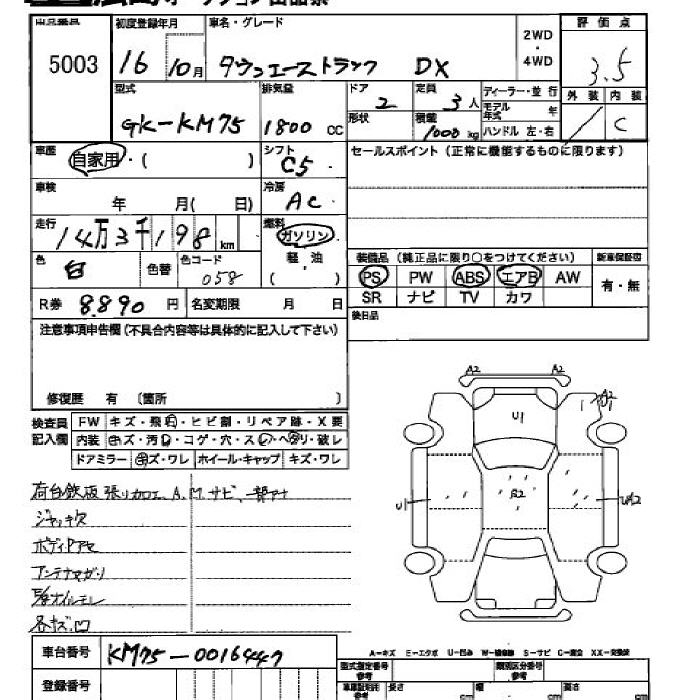 出品番号 初度登録年月 車名・グレード 2WD ・ 4WD 評価点
5003 16 10月 タウンエーストラック DX 3.5
型式 排気量 ドア 定員 ディーラー・並行 外装 内装
GK-KM75 1800 CC 2 3人 モデル年式 年
形状 積載 1000kg ハンドル 左・右 / C
車歴 自家用・( ) シフト C5 セールスポイント (正常に機能するものに限ります)
車検 年 月( 日) 冷房 AC
走行 14万3千198km 燃料 ガソリン 軽・油 ( )
色 白 色替 色コード 058 装備品 (純正品に限り○をつけてください) 新車保証書
PS PW ABS エアB AW 有・無
R券 8,890 円 名変期限 月 日 SR ナビ TV カワ
注意事項申告欄(不具合内容等は具体的に記入して下さい) 後日品
修復歴 有 〔箇所 〕
検査員記入欄 FW キズ・飛石・ヒビ割・リペア跡・X要
内装 キズ・汚レ・コゲ・穴・スレ・ヘタリ・破レ
ドアミラー キズ・ワレ ホイール・キャップ キズ・ワレ
A2 A2
U1 A2
U1 A2 UA2
荷台鉄板張り加工、A、M、サビ、一部アナ
ジャッキ欠
ボディPアセ
アンテナマガリ
各キズ凹
車台番号 KM75-0016447
A-キズ E-エクボ U-凹み W-補修跡 S-サビ C-腐蝕 XX-交換済
登録番号 型式指定番号 参考 類別区分番号 参考
長さ cm 幅 cm 高さ cm